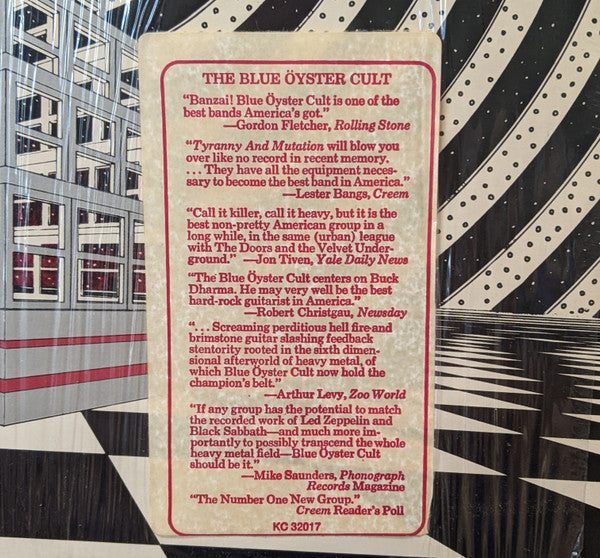 THE BLUE ÖYSTER CULT
“Banzai! Blue Öyster Cult is one of the
best bands America’s got.”
—Gordon Fletcher, Rolling Stone
“Tyranny And Mutation will blow you
over like no record in recent memory.
. . . They have all the equipment neces-
sary to become the best band in America.”
—Lester Bangs, Creem
“Call it killer, call it heavy, but it is the
best non-pretty American group in a
long while, in the same (urban) league
with The Doors and the Velvet Under-
ground.” —Jon Tiven, Yale Daily News
“The Blue Öyster Cult centers on Buck
Dharma. He may very well be the best
hard-rock guitarist in America.”
—Robert Christgau, Newsday
“. . . Screaming perditious hell fire and
brimstone guitar slashing feedback
stentority rooted in the sixth dimen-
sional afterworld of heavy metal, of
which Blue Öyster Cult now hold the
champion’s belt.”
—Arthur Levy, Zoo World
“If any group has the potential to match
the recorded work of Led Zeppelin and
Black Sabbath—and much more im-
portantly to possibly transcend the whole
heavy metal field—Blue Öyster Cult
should be it.”
—Mike Saunders, Phonograph
Records Magazine
“The Number One New Group.”
Creem Reader’s Poll
KC 32017